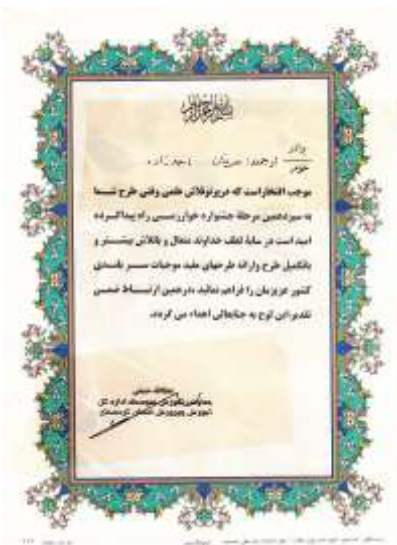 برادر
خواهر
ارجمند
موجب افتخار است که در پرتو تلاش علمی وفنی طرح شما
به سیزدهمین مرحله جشنواره خوارزمی راه پیدا کرده
امید است در سایه لطف خداوند متعال و باتلاش بیشتر و
باتکمیل طرح وارائه طرحهای مفید موجبات سر بلندی
کشور عزیزمان را فراهم نمائید .درهمین ارتباط ضمن
تقدیر این لوح به جنابعالی اهداء می گردد.
آموزش وپرورش استان کردستان